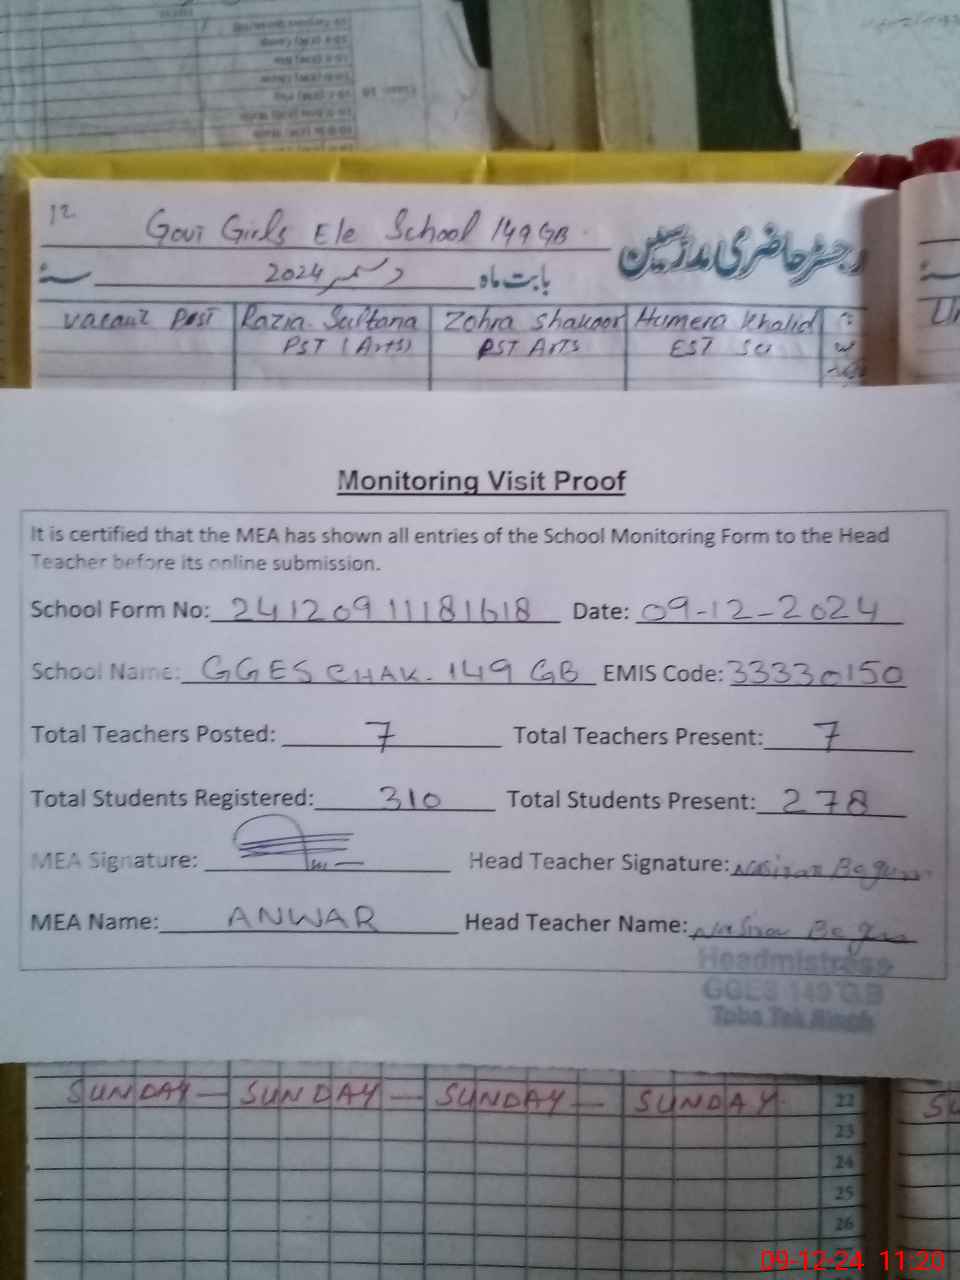 12
Govt Girls Ele School 149 GB
رجسٹر حاضری مدرسین
بابت ماہ دسمبر 2024 سنہ
Vacant Post Razia Sultana Zohra Shakoor Humera Khalid
PST (Arts) PST Arts EST Sci
Monitoring Visit Proof
It is certified that the MEA has shown all entries of the School Monitoring Form to the Head
Teacher before its online submission.
School Form No: 24120911181618 Date: 09-12-2024
School Name: GGES CHAK. 149 GB EMIS Code: 33330150
Total Teachers Posted: 7 Total Teachers Present: 7
Total Students Registered: 310 Total Students Present: 278
MEA Signature: Head Teacher Signature: Nasiran Begum
MEA Name: ANWAR Head Teacher Name: Nasiran Begum
Headmistress
GGES 149 G.B
Toba Tek Singh
SUNDAY — SUNDAY — SUNDAY — SUNDAY 22 SU
23
24
25
26
09-12-24 11:20